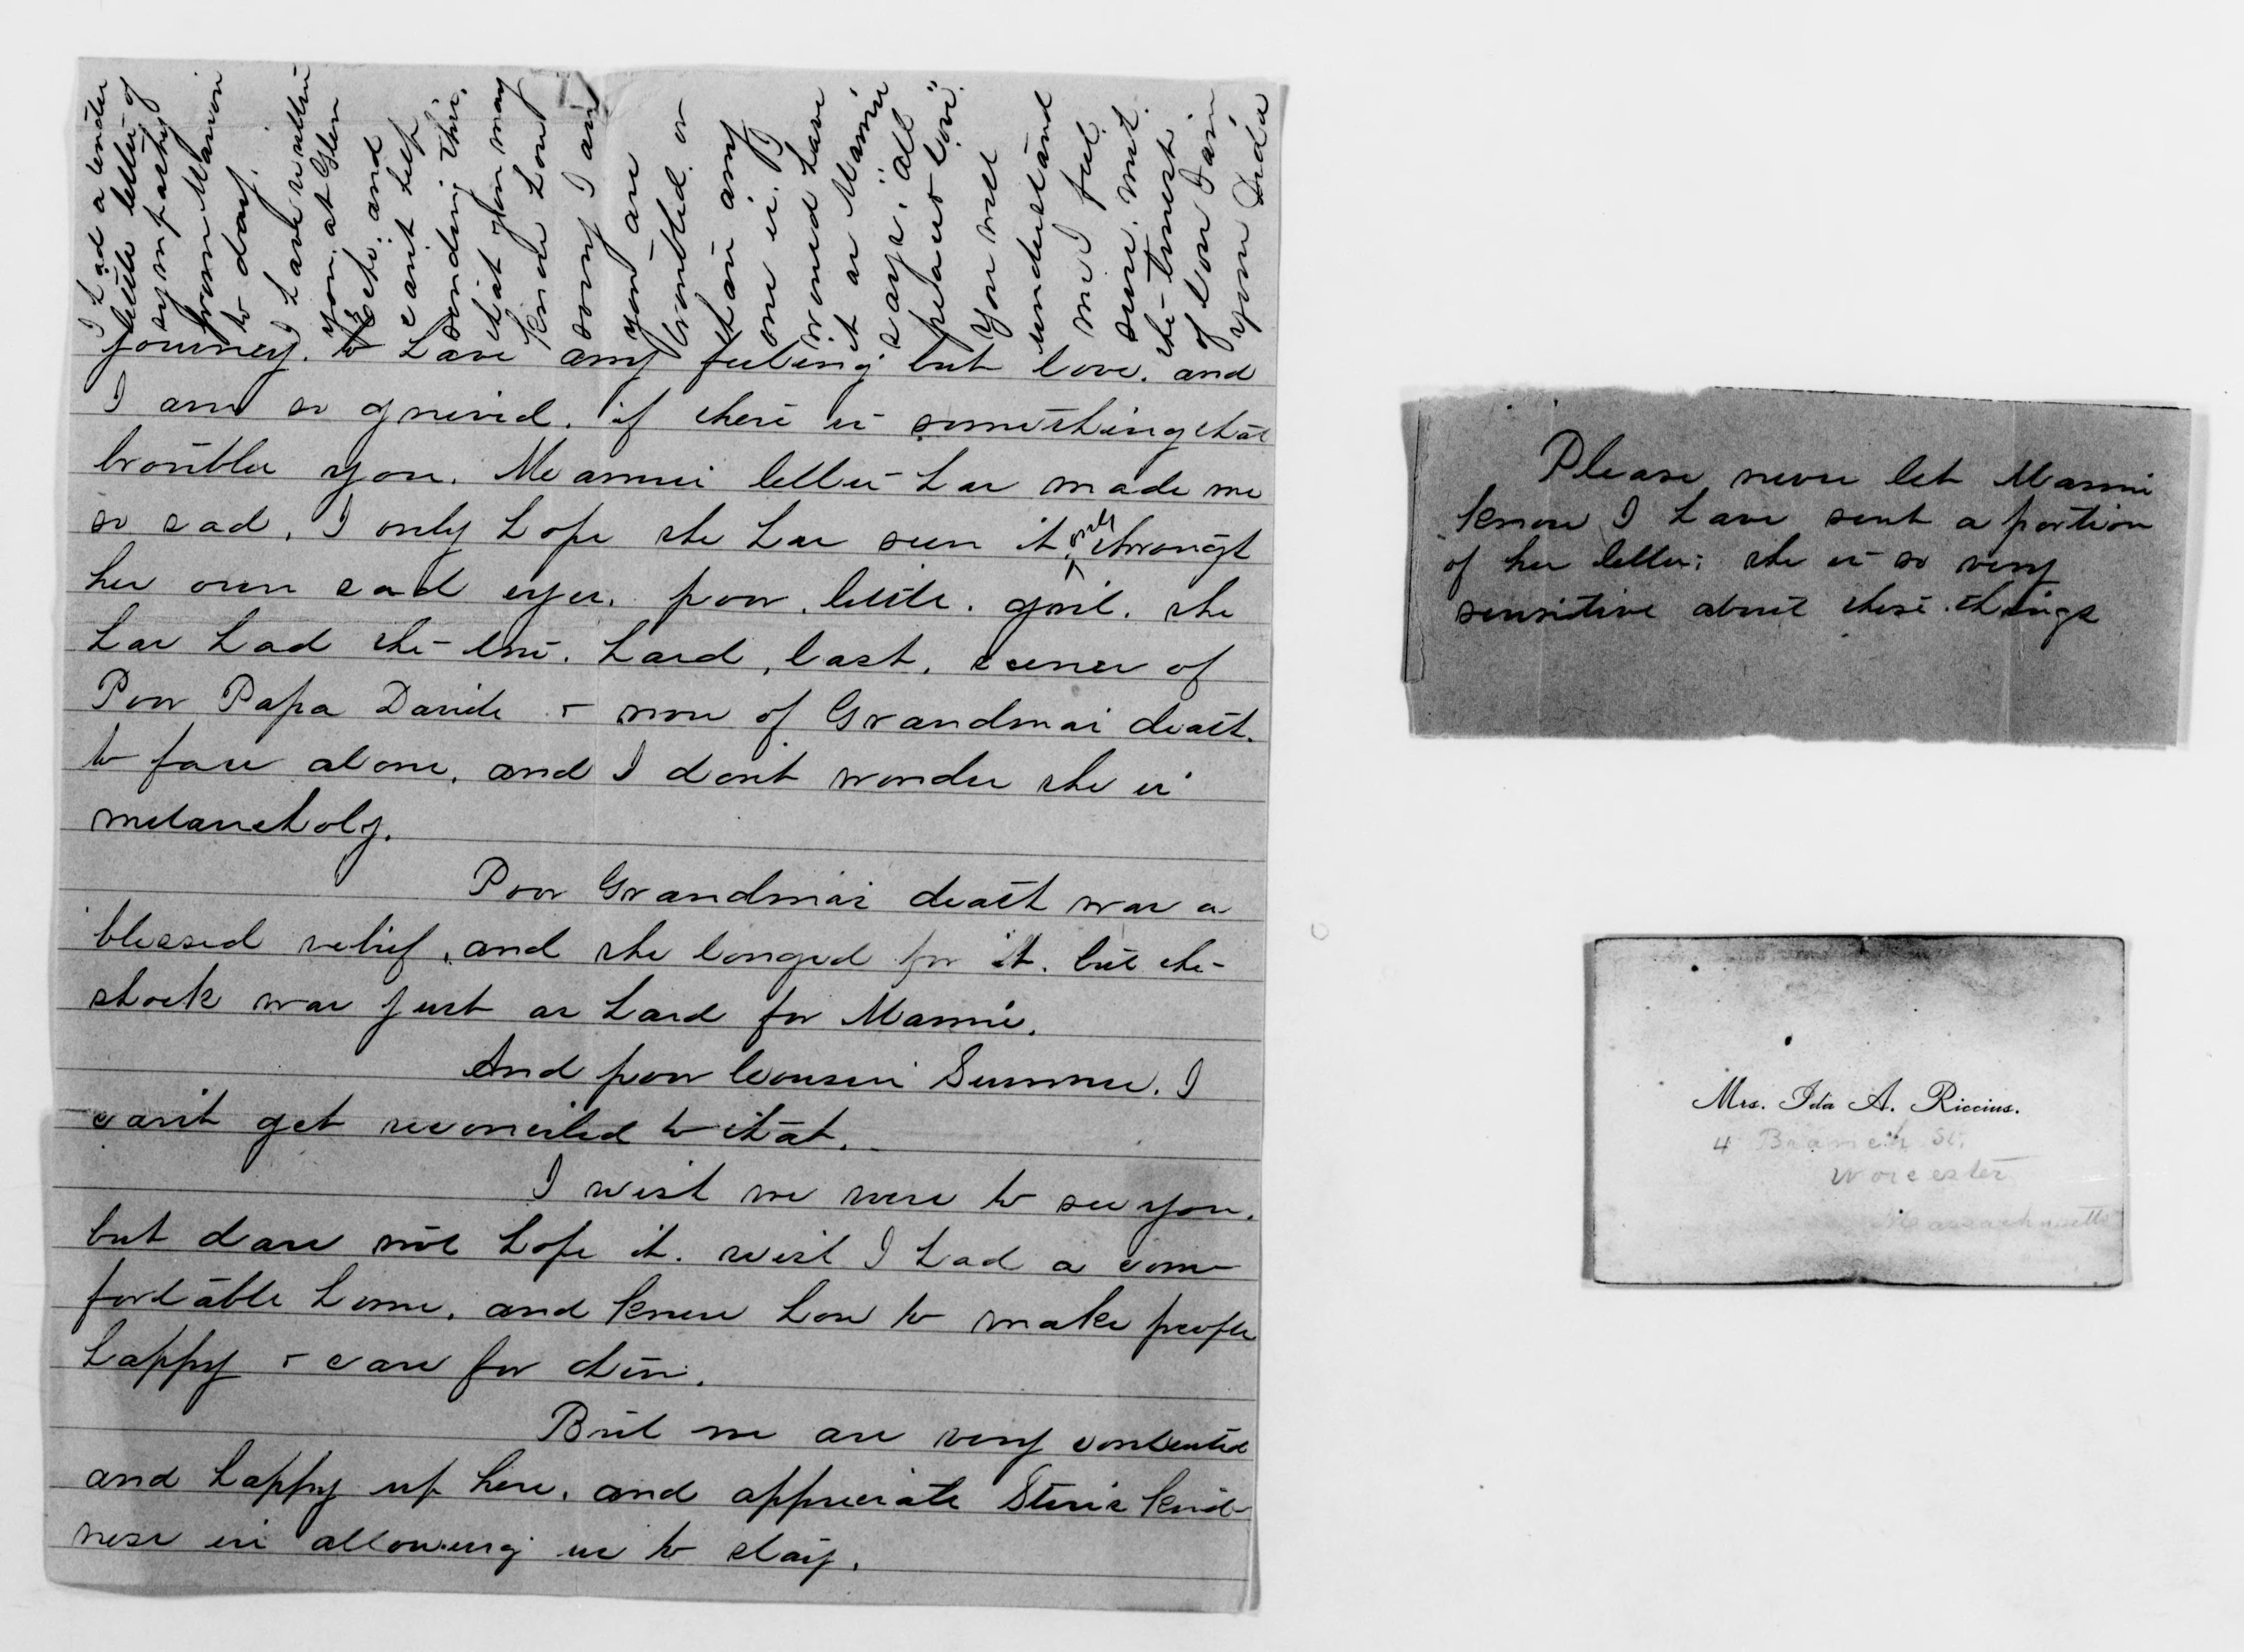 journey. to have any feeling but love. and
I am so grieved. if there is something that
troubles you. Mamies letter has made me
so sad. I only hope she has seen it only through
her own sad eyes. poor. little. girl. she
has had the two. hard, last, scenes of
Poor Papa Davids & now of Grandmas death.
to face alone. and I don't wonder she is
melancholy.
Poor Grandmas death was a
blessed relief, and she longed for it. but the
shock was just as hard for Mamie.
And poor Cousin Sumner. I
can't get reconciled to that.
I wish we were to see you.
but dare not hope it. wish I had a com-
fortable home. and knew how to make people
happy & care for them.
But we are very contented
and happy up here. and appreciate Steves kind-
ness in allowing us to stay.
I had a tender
little letter of
sympathy
from Marion
to day.
I have written
you. at Glen
Echo. and
can't help
sending this.
that you may
know how
sorry I am
you are
troubled. or
than any
one is. I
would have
it as Mamie
says. "all
peace & love".
You will
understand
me I feel
sure. with.
the truest
of love I am
your Ida
Please never let Mamie
know I have sent a portion
of her letter; she is so very
sensitive about these things
Mrs. Ida A. Riccius.
4 Branch St.
Worcester
Massachusetts